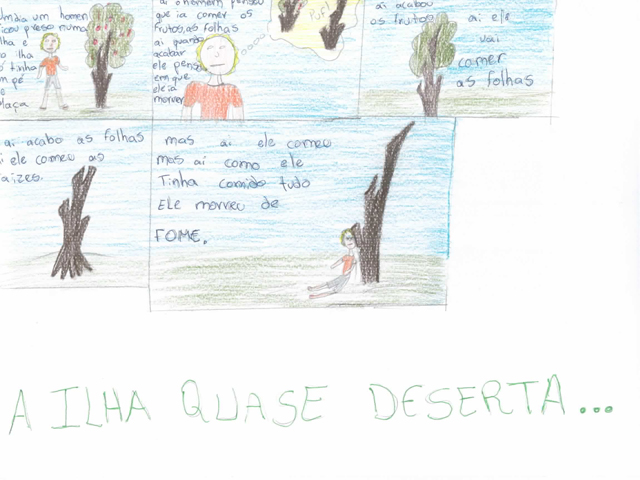 um homem
ficou preso numa
ilha e
ilha
só tinha
um pé
ai o homem pensou
que ia comer os
frutos, as folhas
ai quando
acabar
ele pensa
em que
ele ia
morrer
Puf!
ai acabou
os frutos
ai ele
vai
comer
as folhas
ai acabo as folhas
ai ele comeu as
raizes.
mas ai ele comeu
mas ai como ele
Tinha comido tudo
Ele morreu de
FOME.
A ILHA QUASE DESERTA...